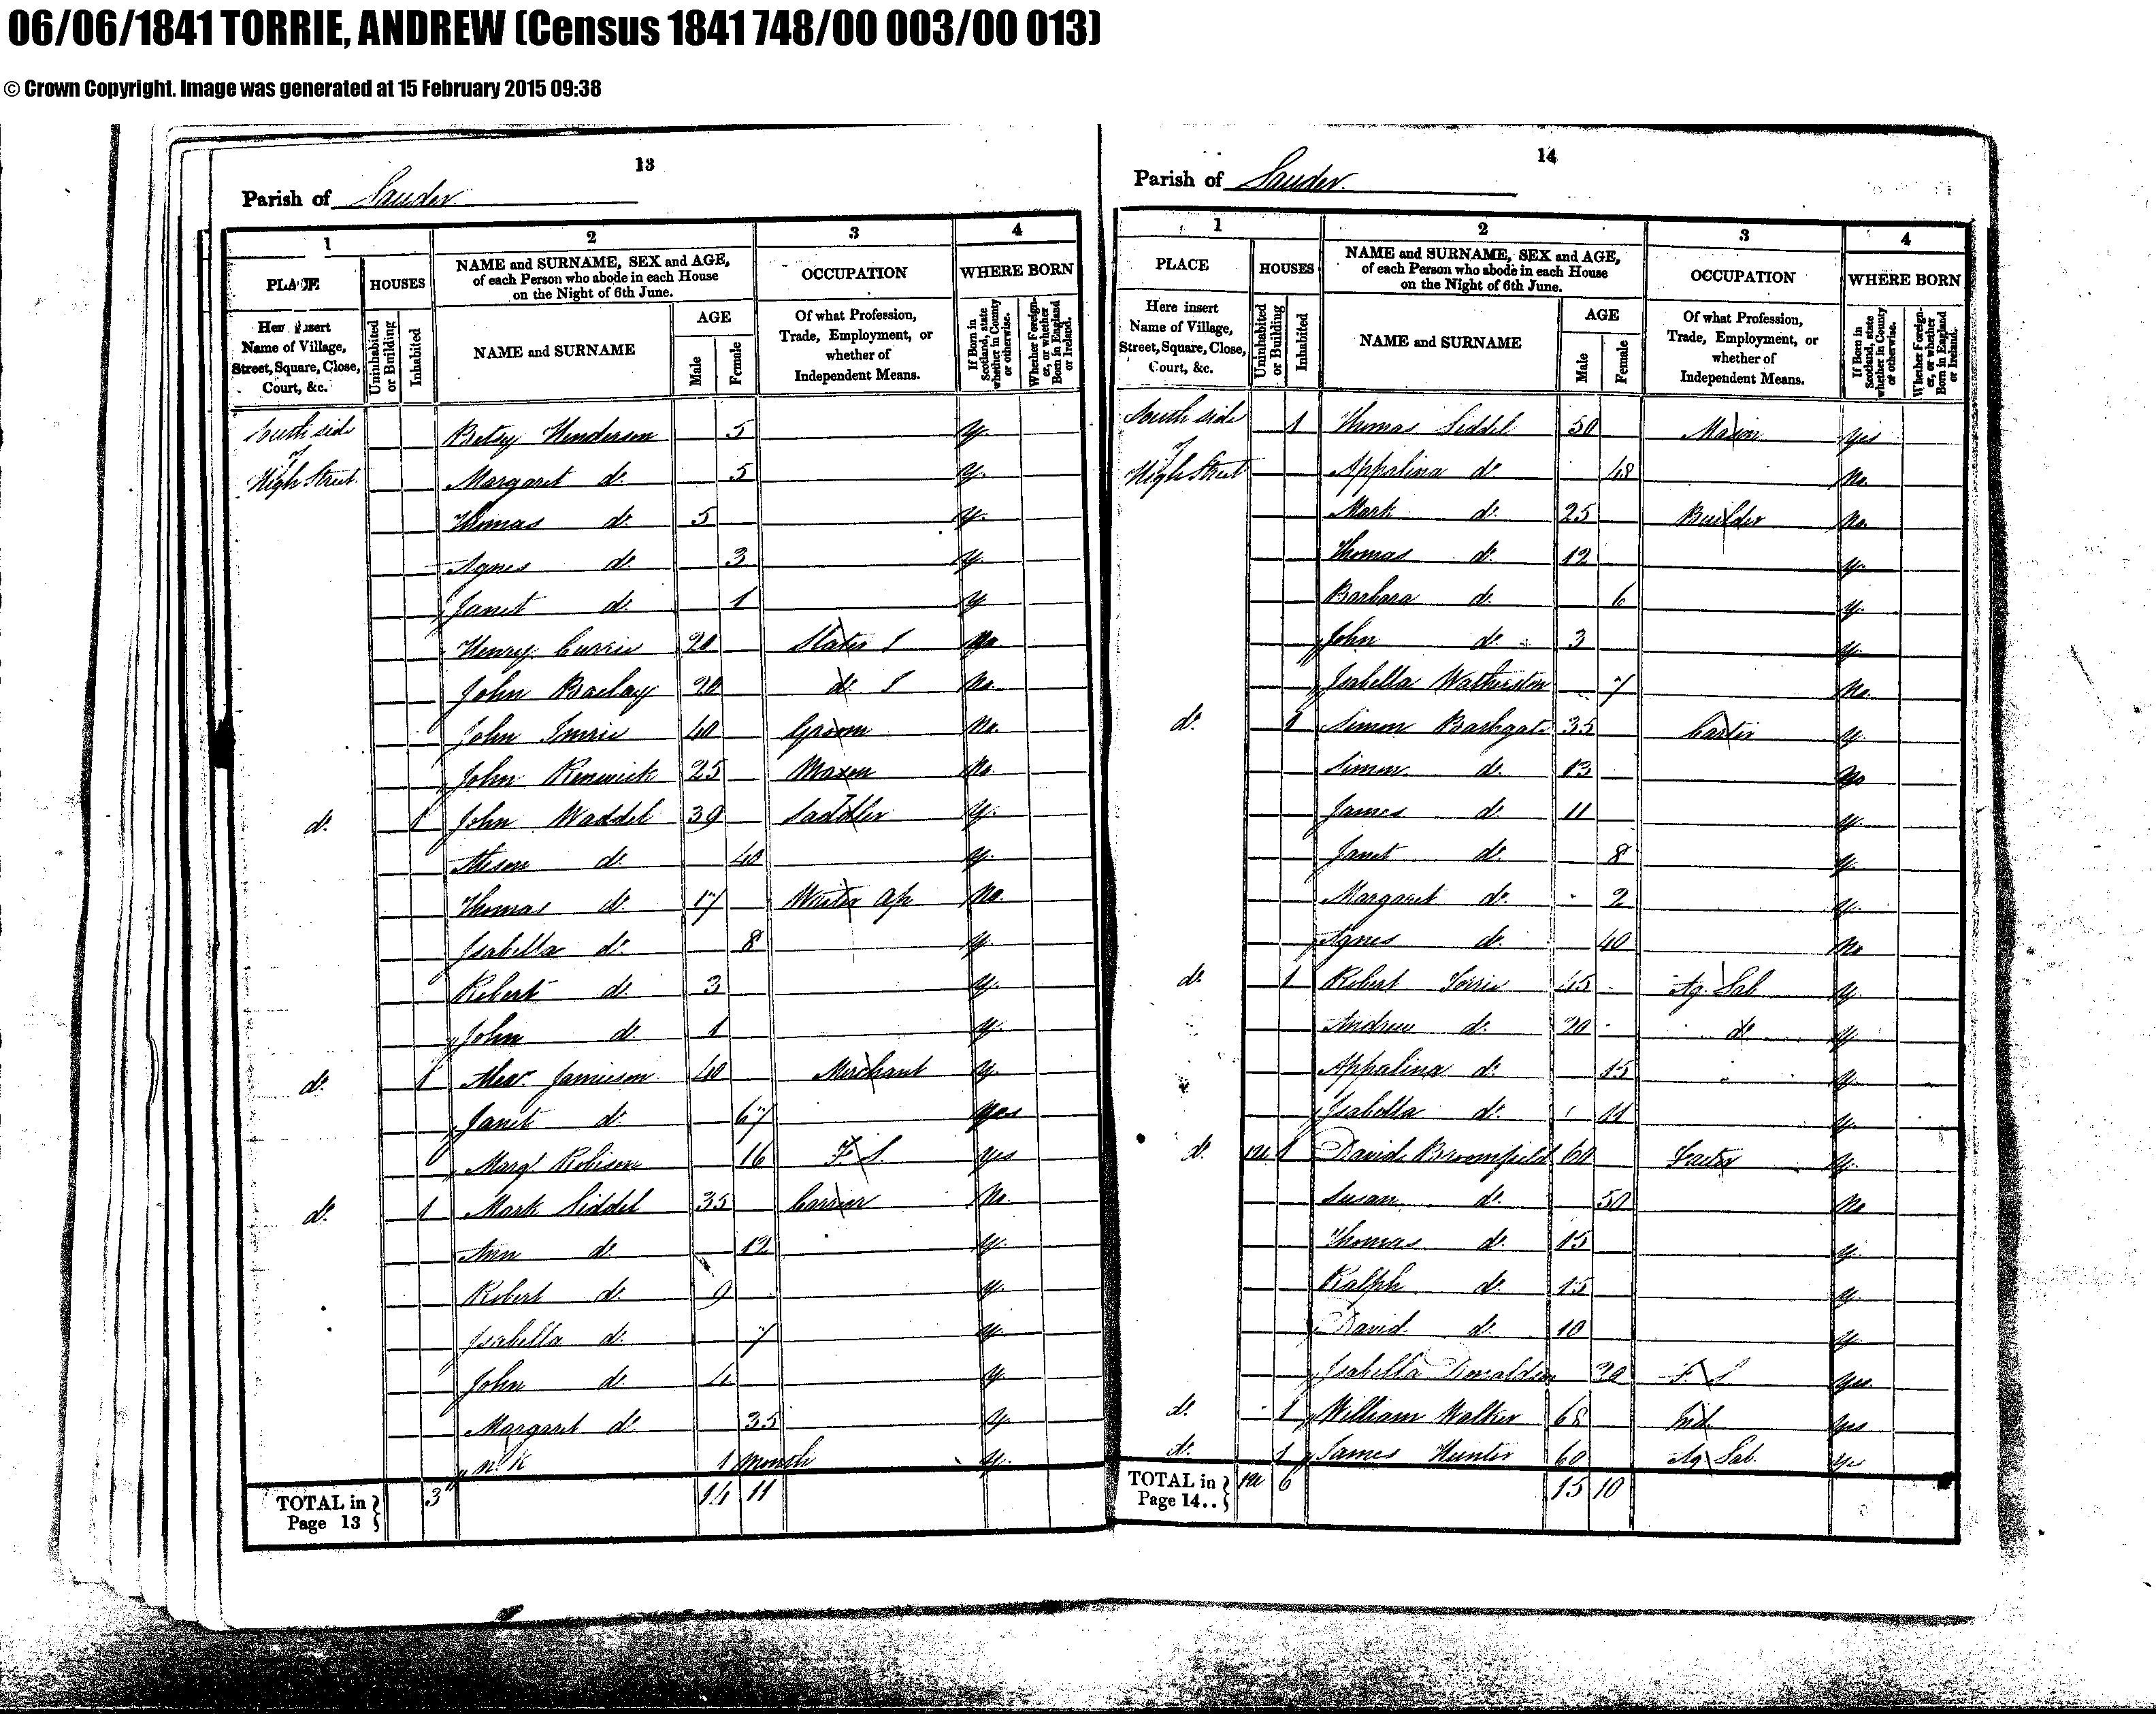 06/06/1841 TORRIE, ANDREW (Census 1841 748/00 003/00 013)
© Crown Copyright. Image was generated at 15 February 2015 09:38
13
Parish of Lauder
1 2 3 4
PLACE HOUSES NAME and SURNAME, SEX and AGE, of each Person who abode in each House on the Night of 6th June. OCCUPATION WHERE BORN
Here insert Name of Village, Street, Square, Close, Court, &c. Uninhabited or Building Inhabited NAME and SURNAME AGE Male Female Of what Profession, Trade, Employment, or whether of Independent Means. If Born in Scotland, state whether in County or otherwise. Whether Foreigner, or whether Born in England or Ireland.
South side Betsy Henderson 5 Y.
of
High Street Margaret do. 5 Y.
Thomas do. 5 Y.
Agnes do. 3 Y.
Janet do. 1 Y
Henry Currie 20 Slater J No.
John Barclay 20 do. J No.
John Imrie 40 Groom No.
John Renwick 25 Mason No.
do. 1 John Waddel 39 Saddler Y.
Alison do. 40 Y.
Thomas do. 17 Writer Ap No.
Isabella do. 8 Y.
Robert do. 3 Y.
John do. 1 Y.
do. 1 Alexr. Jamieson 40 Merchant Y.
Janet do. 67 Yes
Margt. Robison 16 F. S. Yes
do. 1 Mark Liddel 35 Carrier No.
Ann do. 12 Y.
Robert do. 9 Y.
Isabella do. 7 Y.
John do. 4 Y.
Margaret do. 35 Y.
n. k 1 Month Y.
TOTAL in Page 13 3 14 11
14
Parish of Lauder
1 2 3 4
PLACE HOUSES NAME and SURNAME, SEX and AGE, of each Person who abode in each House on the Night of 6th June. OCCUPATION WHERE BORN
Here insert Name of Village, Street, Square, Close, Court, &c. Uninhabited or Building Inhabited NAME and SURNAME AGE Male Female Of what Profession, Trade, Employment, or whether of Independent Means. If Born in Scotland, state whether in County or otherwise. Whether Foreigner, or whether Born in England or Ireland.
South side 1 Thomas Liddel 50 Mason Yes
of
High Street Appalina do. 48 No.
Mark do. 25 Builder No.
Thomas do. 12 Y.
Barbara do. 6 Y.
John do. 3 Y.
Isabella Watherston 7 No.
do. 1 Simon Bathgate 35 Carter Y.
Simon do. 13 No
James do. 11 Y.
Janet do. 8 Y.
Margaret do. 2 Y.
Agnes do. 40 No
do. 1 Robert Torrie 45 Ag. Lab Y.
Andrew do. 20 do Y.
Appalina do. 15 Y.
Isabella do. 11 Y.
do. 1 David Broomfield 60 Factor Y.
Susan do. 50 No
Thomas do. 15 Y.
Ralph do. 15 Y.
David do. 10 Y.
Isabella Donaldson 20 F. S Yes
do. 1 William Walker 68 Ind. Yes
do. 1 James Hunter 60 Ag. Lab. Yes
TOTAL in Page 14.. 6 15 10